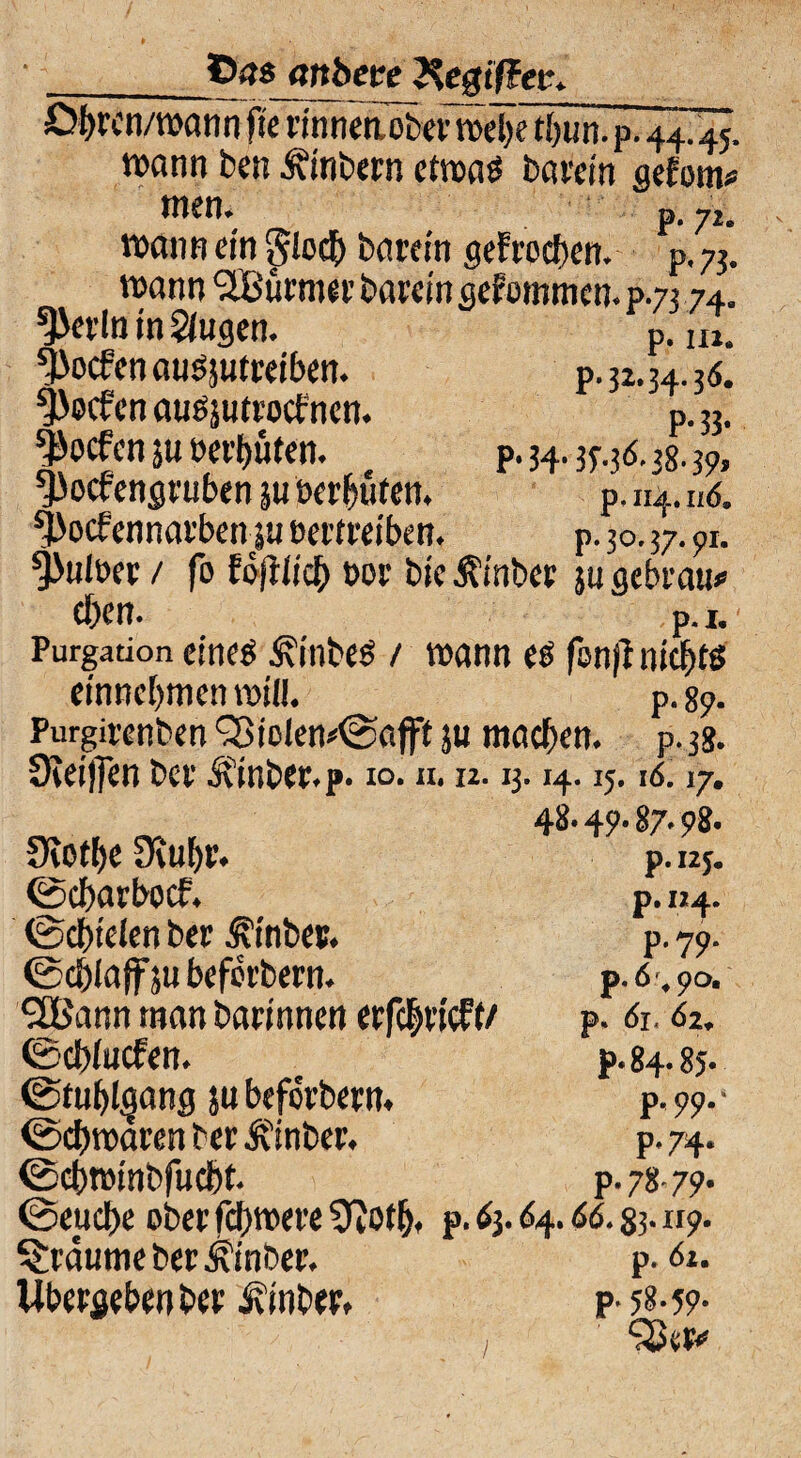 Das andere Regiſter.
Ohren/wann ſie rinnen oder wehe thun. p. 44. 45.
wann den Kindern etwas darein gekom⸗
men. p. 72.
wann ein Floch darein gekrochen. p. 73.
wann Würmer darein gekommen. p. 73 74.
Perln in Augen. p. 112.
Pocken auszutreiben. p. 32. 34. 36.
Pocken auszutrocknen. p. 33.
Pocken zu verhüten. p. 34. 35. 36. 38. 39,
Pockengruben zu verhüten. p. 114. 116.
Pockennarben zu vertreiben. p. 30. 37. 91.
Pulver / ſo köſtlich vor die Kinder zu gebrau⸗
chen. p. 1.
Purgation eines Kindes / wann es ſonſt nichts
einnehmen will. p. 89.
Purgirenden Violen⸗Safft zu machen. p. 38.
Reiſſen der Kinder. p. 10. 11. 12. 13. 14. 15. 16. 17.
48. 49. 87. 98.
Rothe Ruhr. p. 125.
Scharbock. p. 124.
Schielen der Kinder. p. 79.
Schlaff zu befördern. p. 6 . 90.
Wann man darinnen erſchrickt/ p. 61. 62.
Schlucken. p. 84. 85.
Stuhlgang zu befördern. p. 99.
Schwären der Kinder. p. 74.
Schwindſucht. p. 78 79.
Seuche oder ſchwere Noth. p. 63. 64. 66. 83. 119.
Träume der Kinder. p. 62.
Übergeben der Kinder. p. 58. 59.
Ver⸗